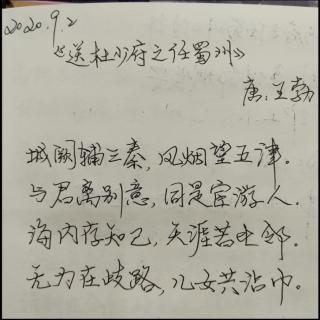 2020.9.2
《送杜少府之任蜀州》
唐:王勃
城阙辅三秦,风烟望五津.
与君离别意,同是宦游人.
海内存知己,天涯若比邻.
无为在歧路,儿女共沾巾。